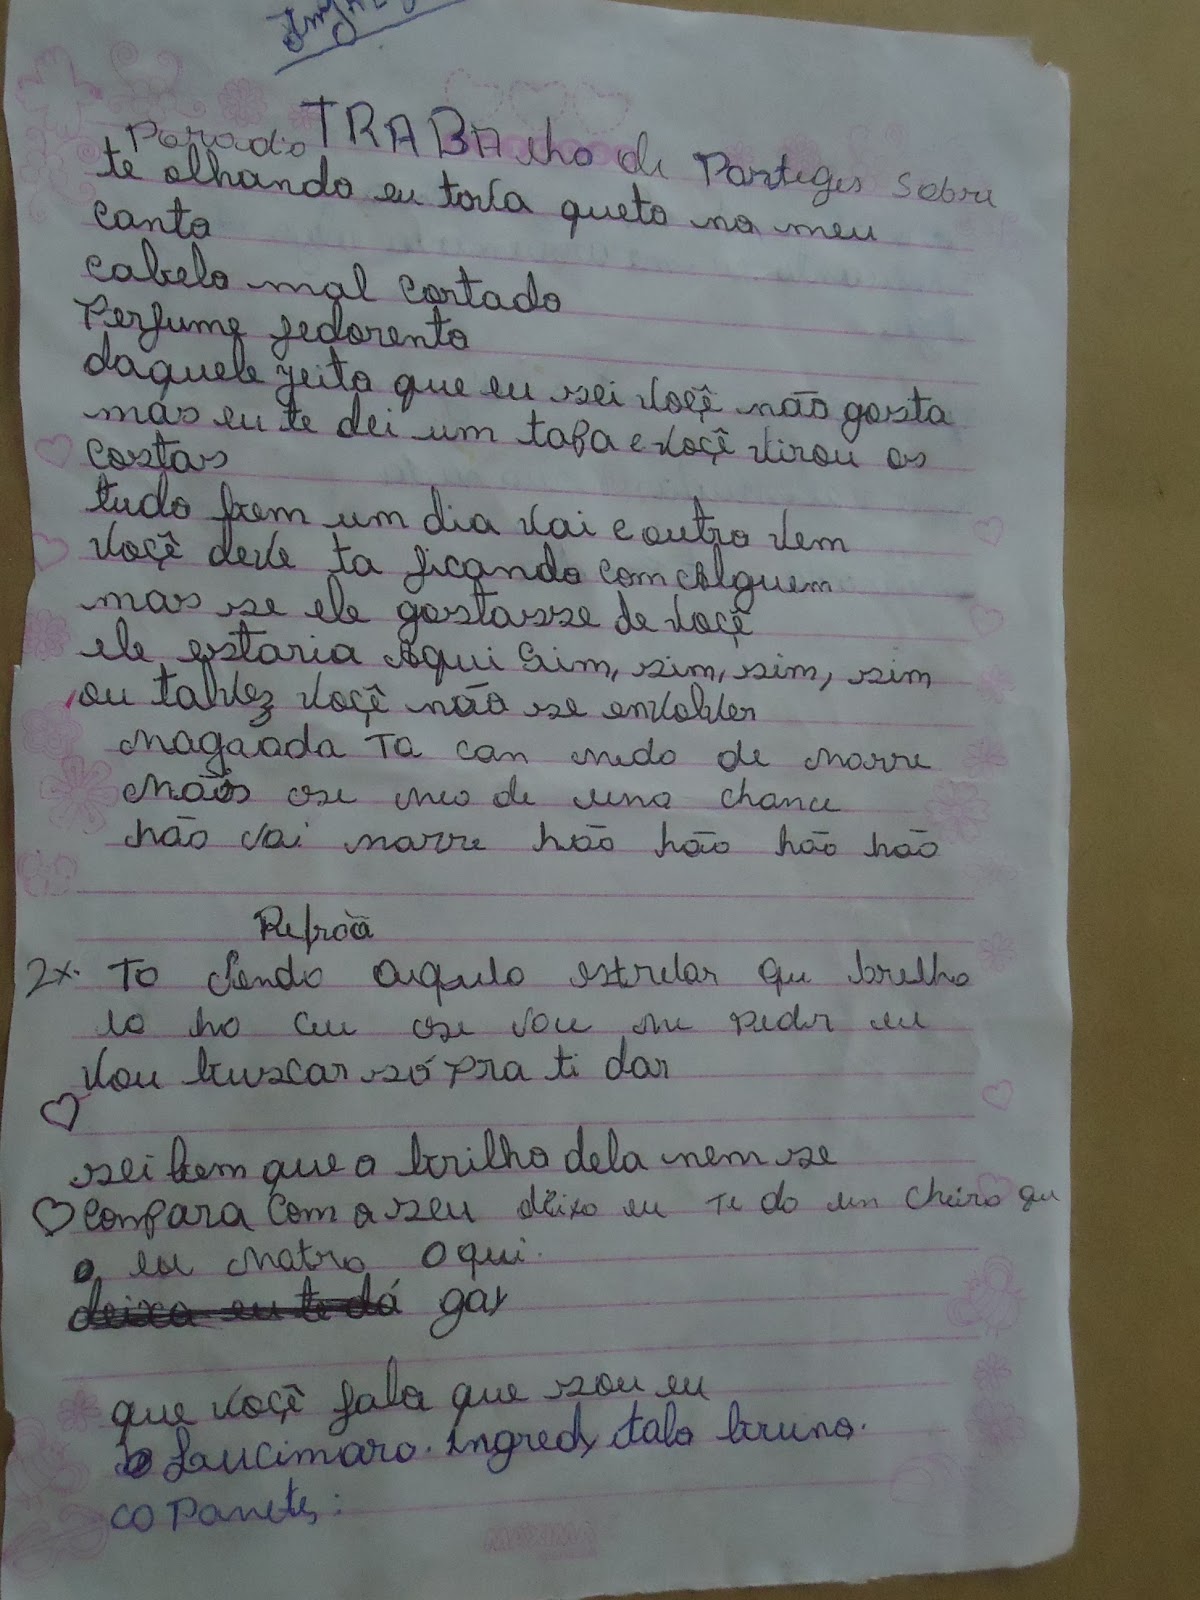 TRABAlho de Porteges Sobre
Parodio
te olhando eu tova queto no meu
canto
cabelo mal cortado
Perfume fedorento
daquele jeito que eu sei voçê não gosta
mas eu te dei um tapa e voçê virou as
costas
tudo bem um dia vai e outro vem
voçê deve ta ficando com alguem
mas se ele gostasse de voçê
ele estaria Aqui Sim, sim, sim, sim
ou talvez voçê não se envolver
magoada Ta can medo de morre
mãos se meo de uma chance
não vai morre não não não não
Refroã
2x. To vendo aquelo estrelar que brelho
lo no ceu se vou me peder eu
vou buscar só pra ti dar
sei bem que o brilho dela nem se
compara com o seu deixo eu Te do um cheiro que
eu matro aqui.
deixa eu te dá gay
que voçê fala que sou eu
Laucimaro. ingredy italo bruno.
co Panetes: